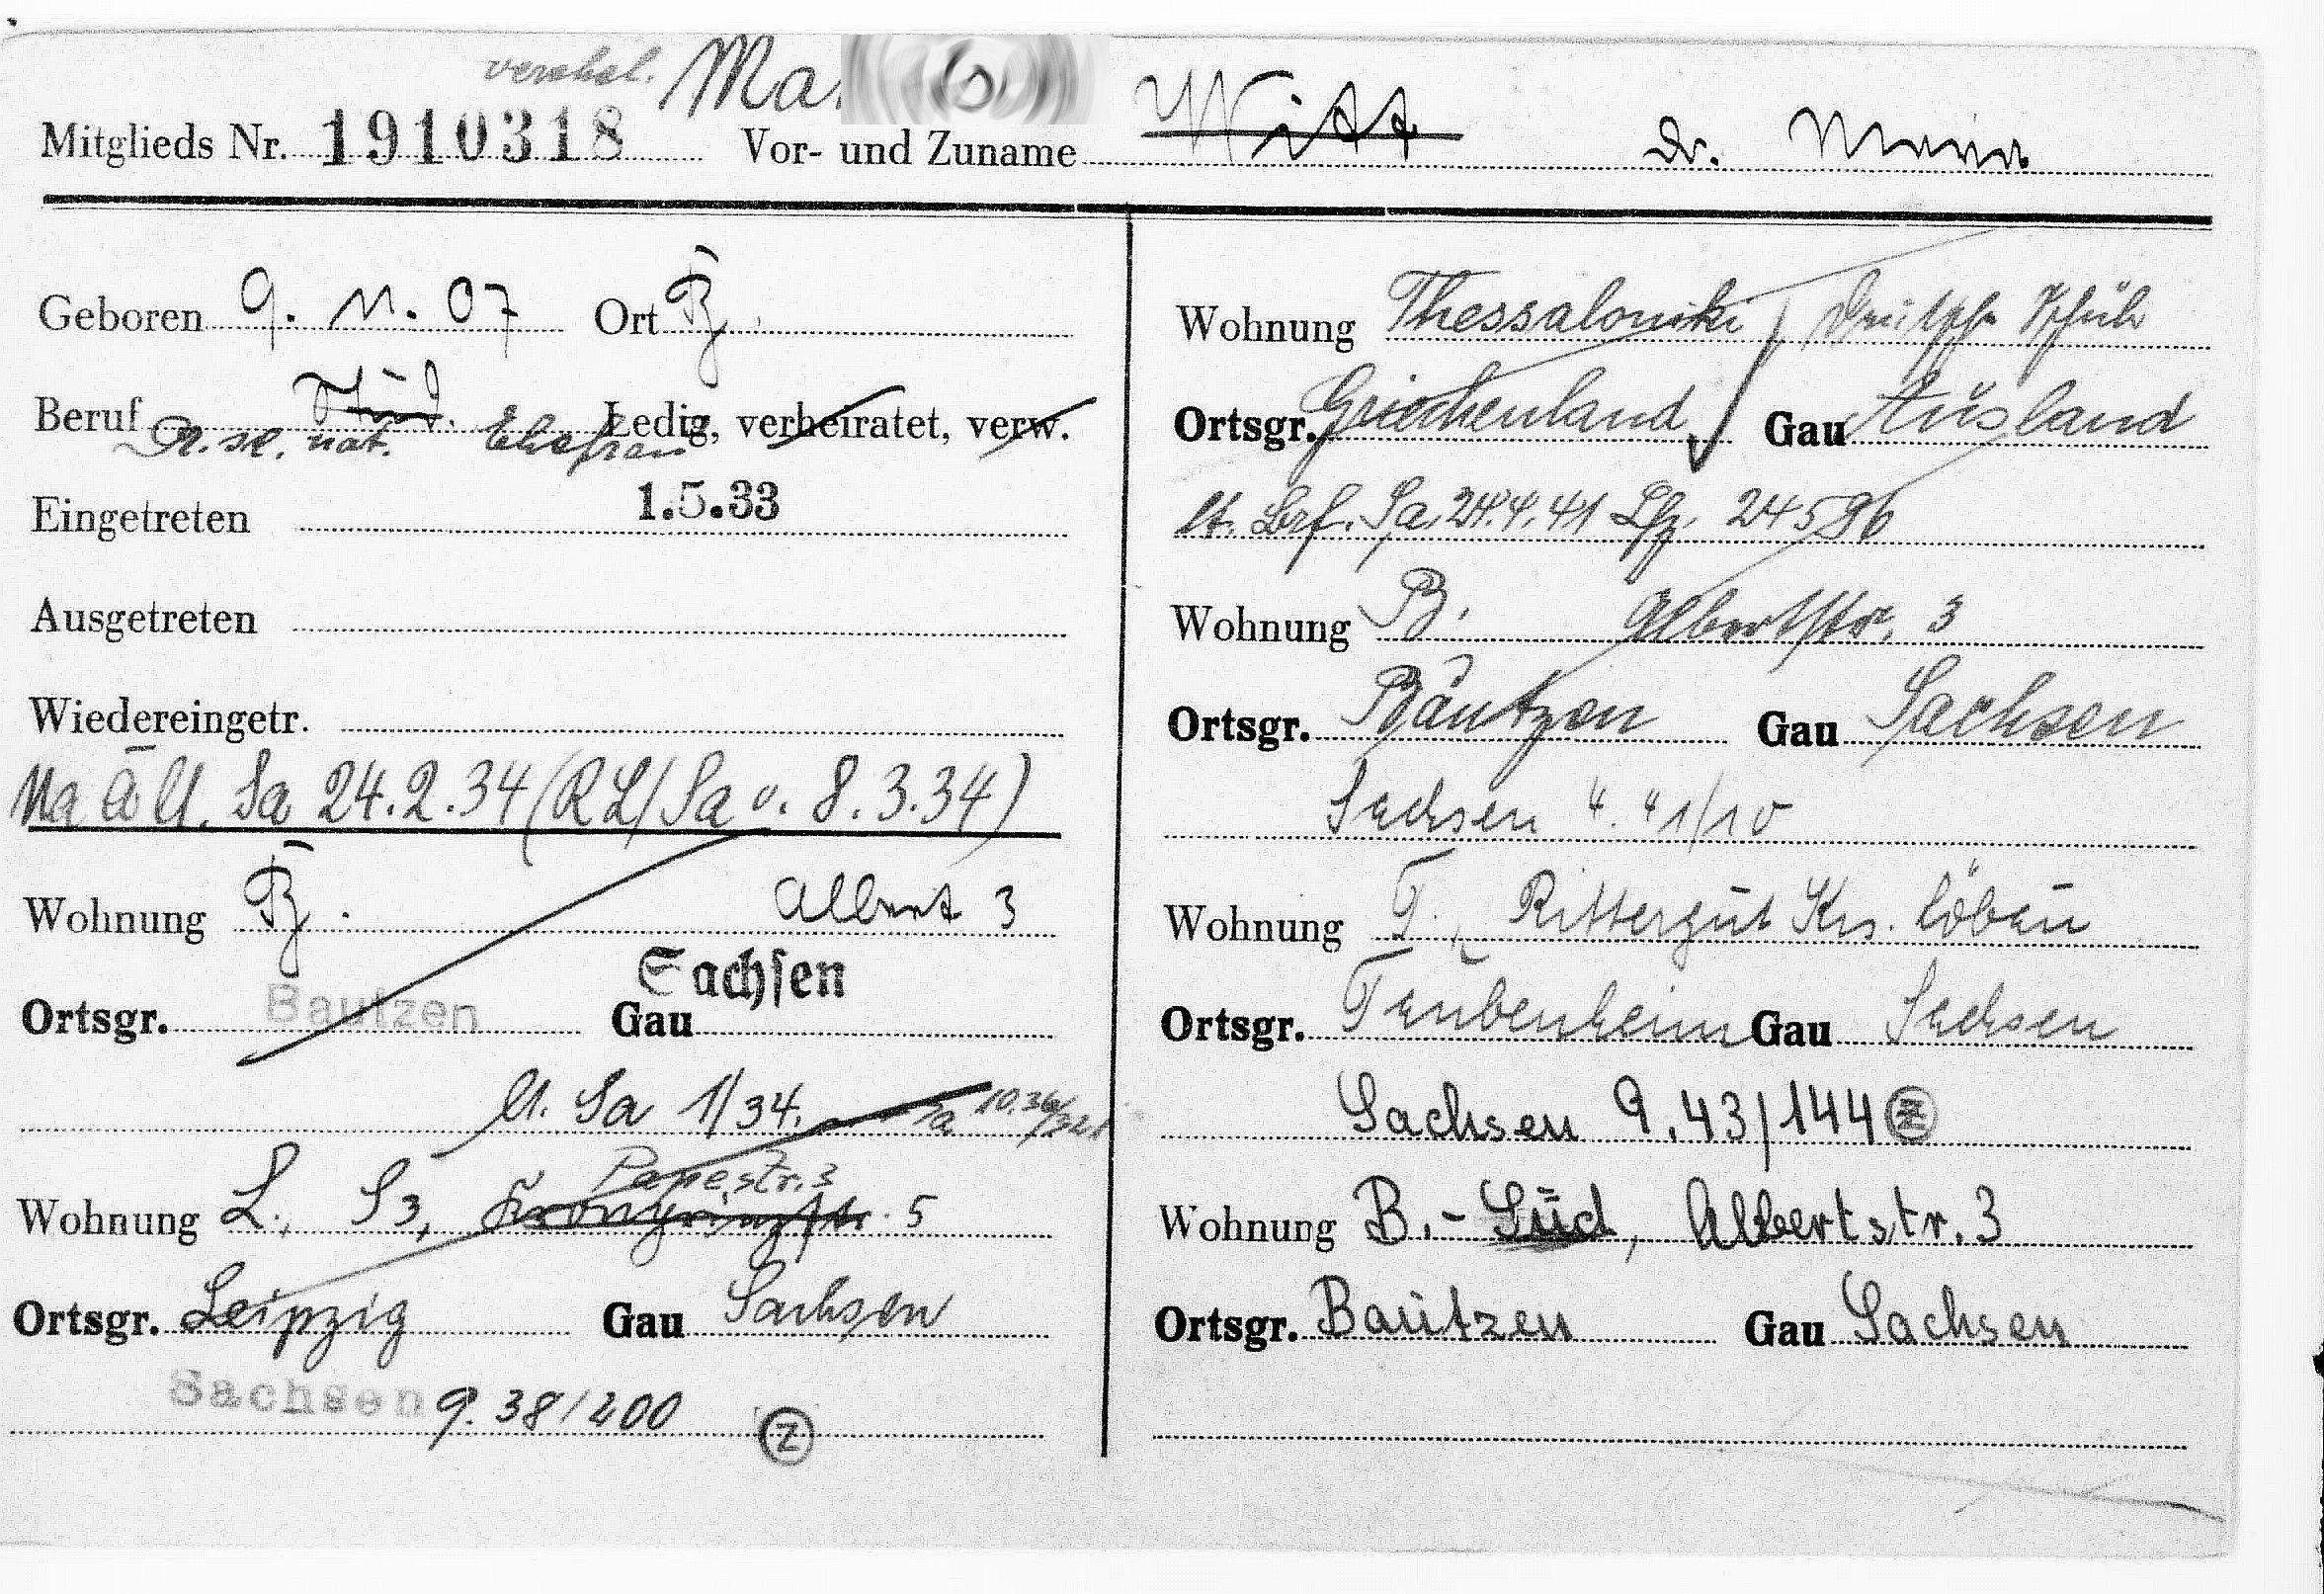 verehel. Ma
Mitglieds Nr. 1910318 Vor- und Zuname Witt Dr. Maria
Geboren 9. 11. 07 Ort Bz.
Beruf Stud. Ledig, verheiratet, verw.
Dr. sc. nat. Ehefrau
Eingetreten 1.5.33
Ausgetreten
Wiedereingetr.
lt. Sa 24.2.34 (RL/Sa v. 8.3.34)
Wohnung Bz. Albert 3
Ortsgr. Bautzen Gau Sachsen
lt. Sa 1/34. 10.36
Papestr. 3
Wohnung L., S3, Kronprinzstr. 5
Ortsgr. Leipzig Gau Sachsen
Sachsen 9.38/200 Z
Wohnung Thessaloniki, Deutsche Schule
Ortsgr. Griechenland Gau Ausland
lt. Brf. Sa. 24.4.41 Lfg. 24586
Wohnung B. Albertstr. 3
Ortsgr. Bautzen Gau Sachsen
Sachsen " . " 1/10
Wohnung T., Rittergut Krs. Löbau
Ortsgr. Taubenheim Gau Sachsen
Sachsen 9.43/144 Z
Wohnung B.-Süd, Albertstr. 3
Ortsgr. Bautzen Gau Sachsen